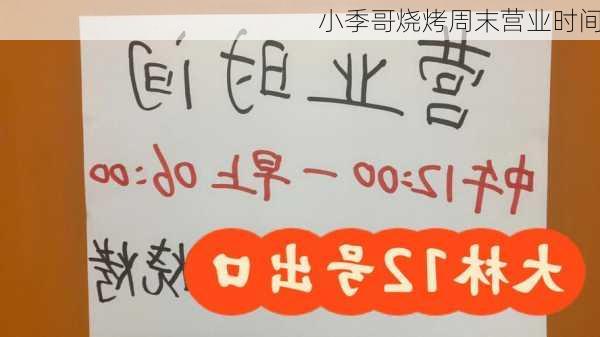 小季哥烧烤周末营业时间
营业时间
中午12:00一早上06:00
大林12号出口
烧烤